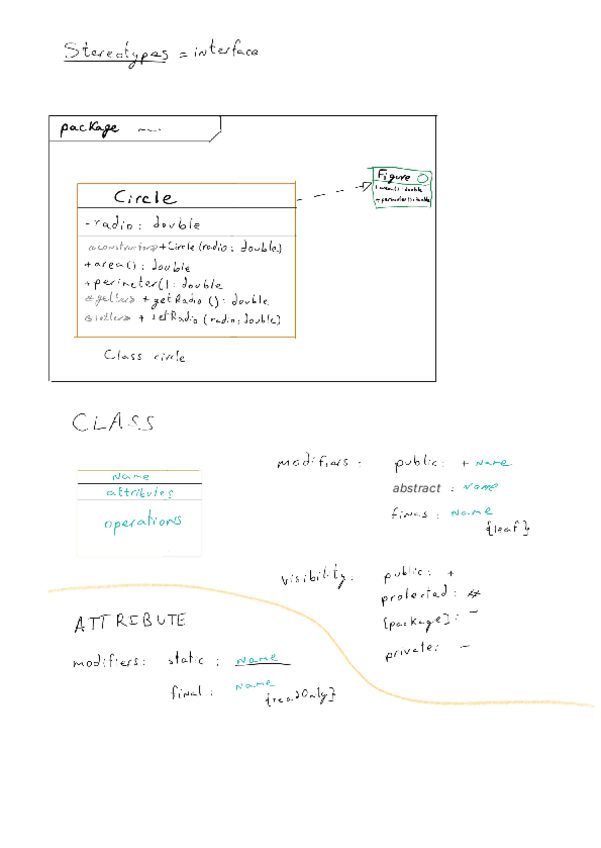 Stereotypes = interface
package
Figure
+ area(): double
+ perimeter(): double
Circle
- radio: double
«constructor» + Circle (radio: double)
+ area(): double
+ perimeter(): double
«getter» + getRadio (): double
«setter» + setRadio (radio: double)
Class circle
CLASS
Name
attributes
operations
modifiers :
public: + Name
abstract : Name
Name
{leaf}
visibility:
public: +
protected: #
[package]: ~
private: -
ATTRIBUTE
modifiers: static : Name
final : Name
{readOnly}